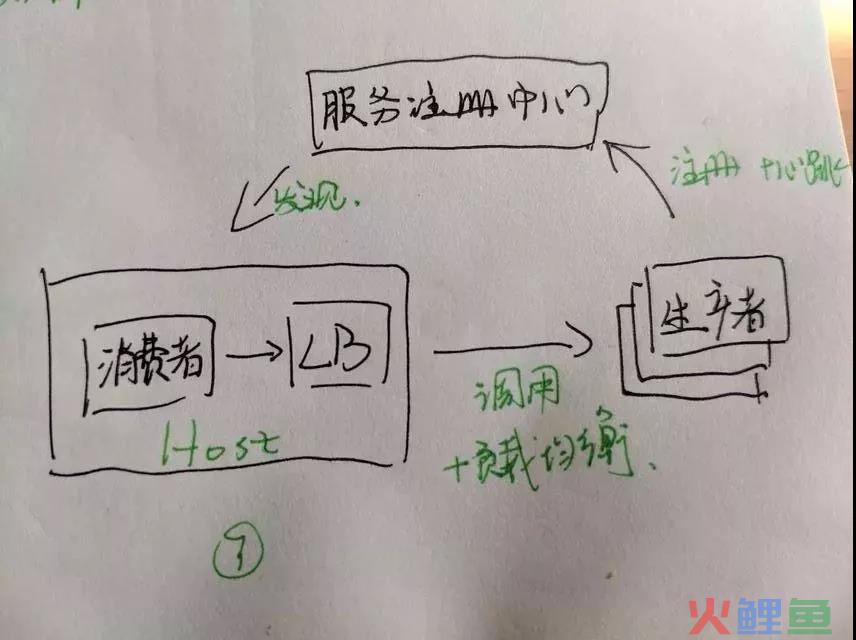 服务注册中心
注册 +心跳
发现.
生产者
消费者
LB
调用
Host
+负载均衡.
①
火鲤鱼